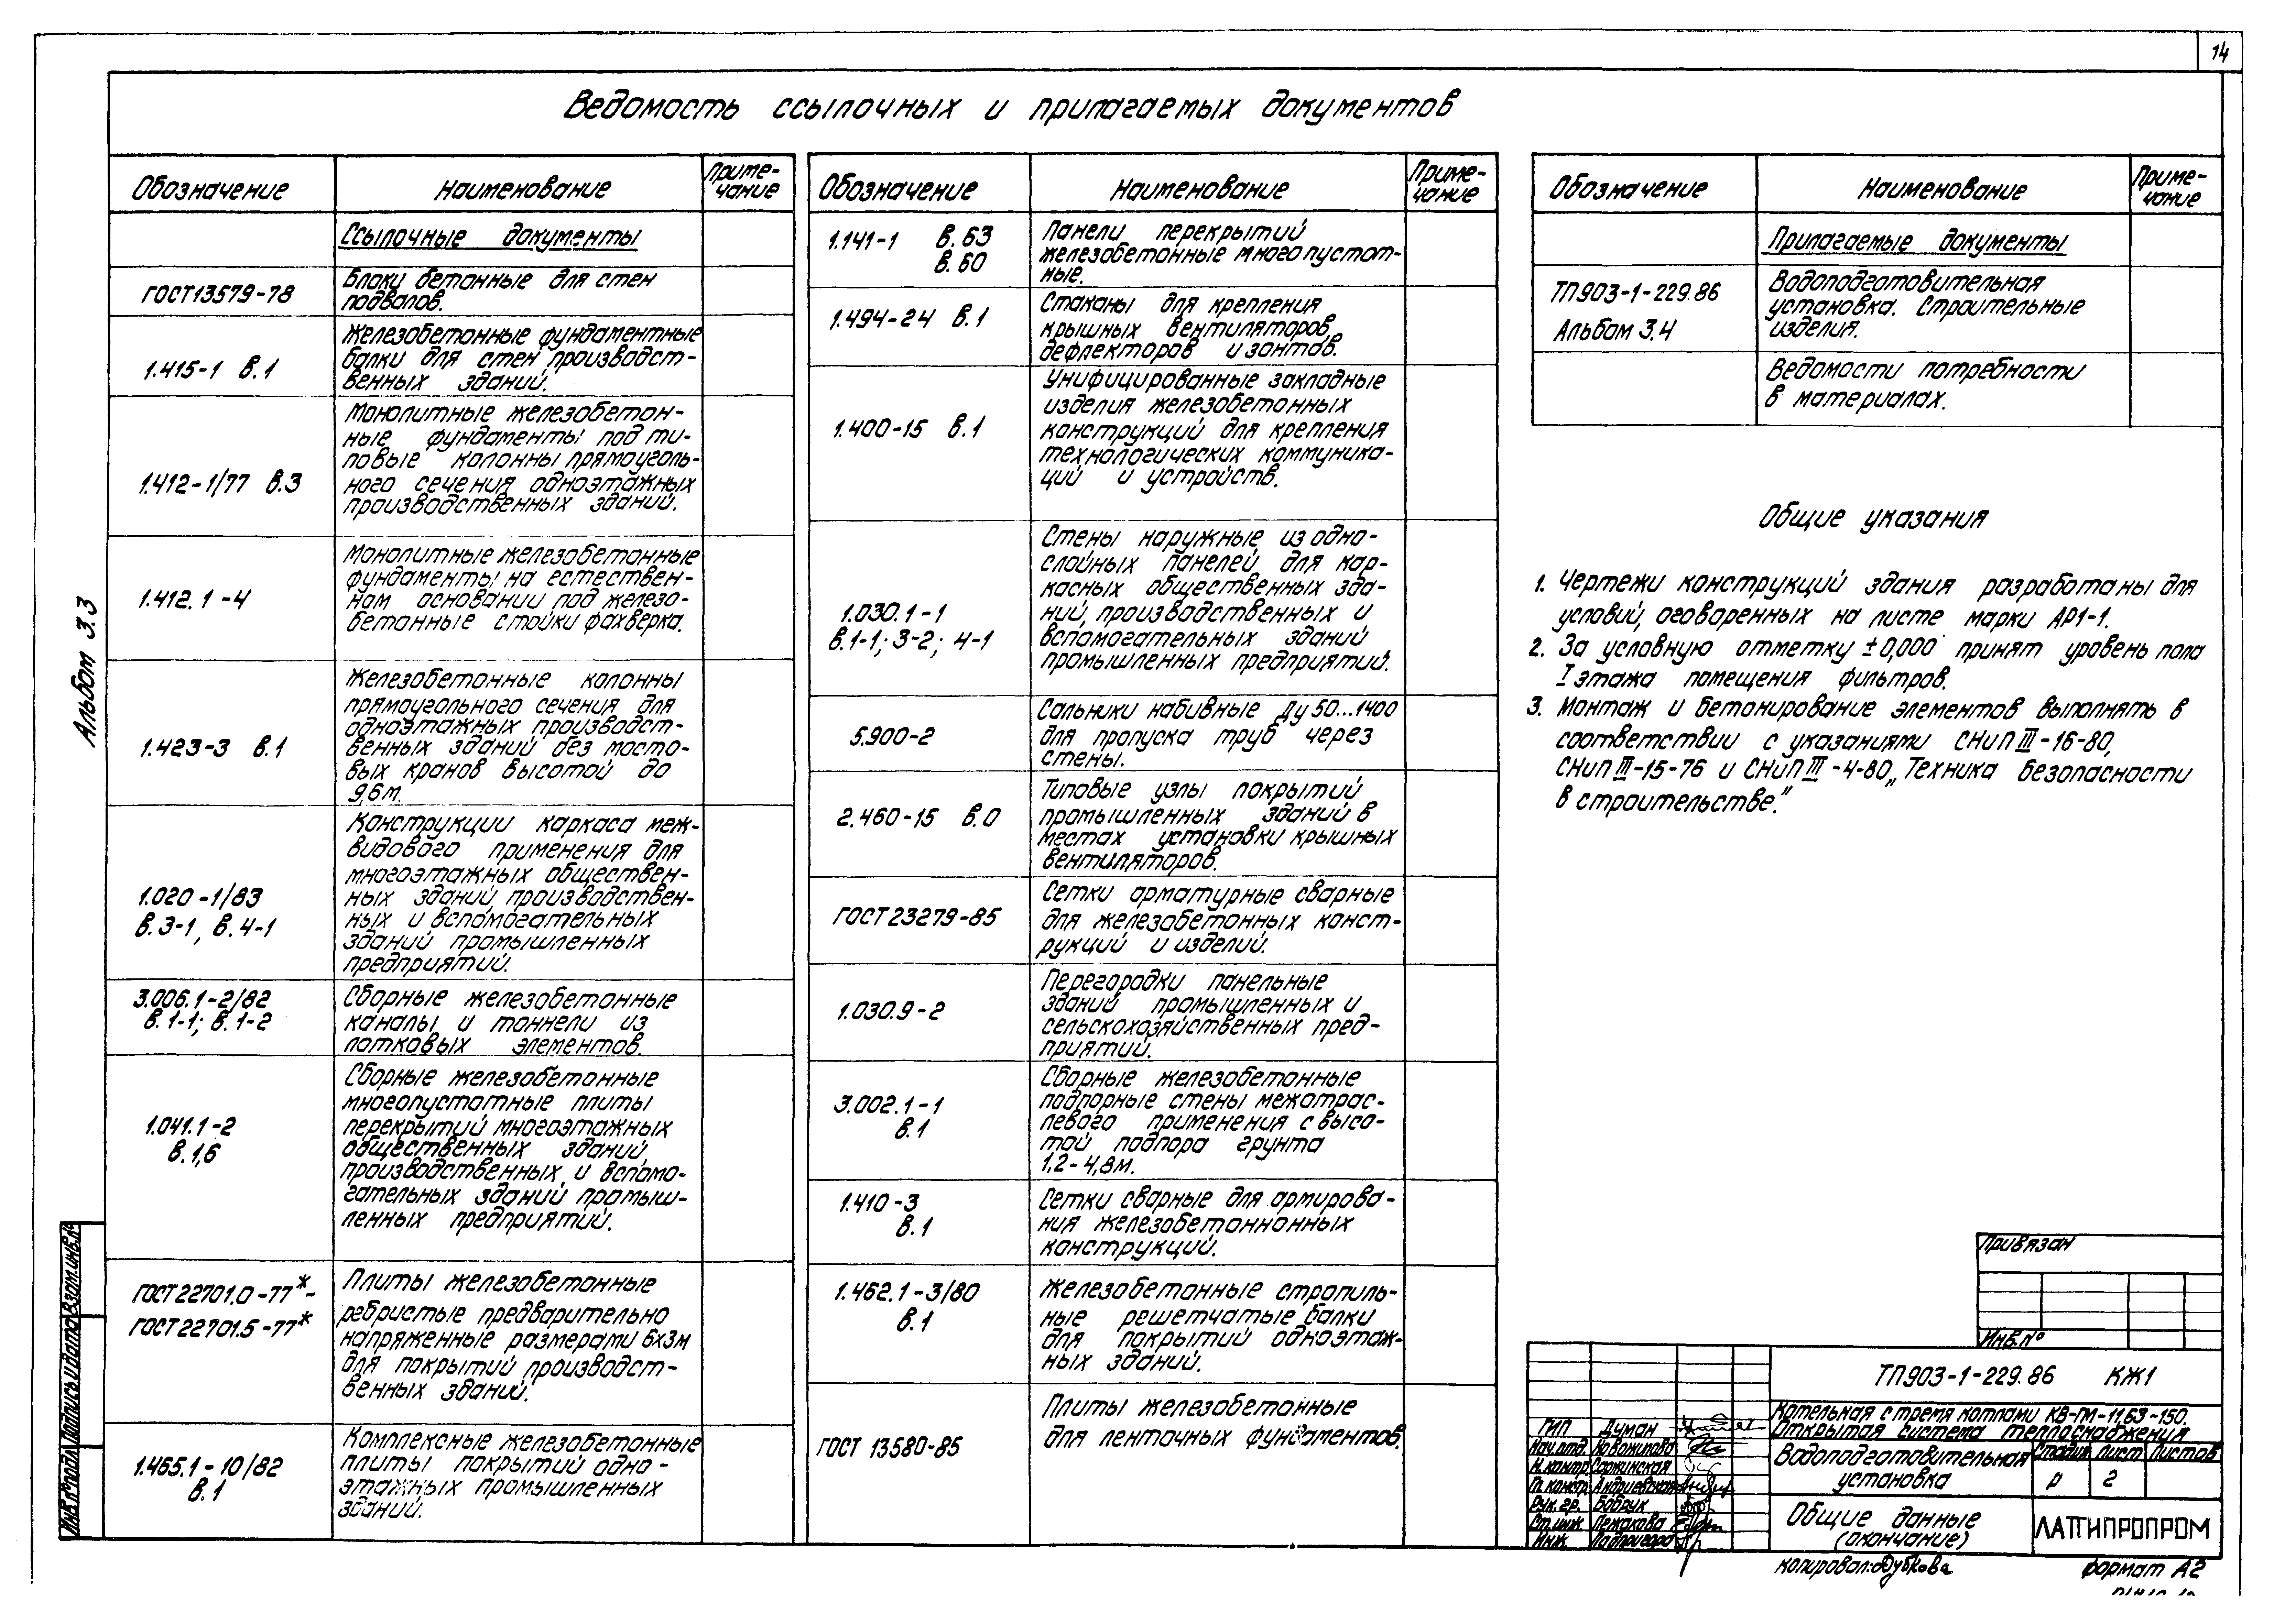 14
Ведомость ссылочных и прилагаемых документов
Обозначение
Наименование
Приме-
чание
Ссылочные документы
ГОСТ 13579-78
Блоки бетонные для стен
подвалов.
1.415-1 в.1
Железобетонные фундаментные
балки для стен производст-
венных зданий.
1.412-1/77 в.3
Монолитные железобетон-
ные фундаменты под ти-
повые колонны прямоуголь-
ного сечения одноэтажных
производственных зданий.
1.412.1-4
Монолитные железобетонные
фундаменты на естествен-
ном основании под железо-
бетонные стойки фахверка.
1.423-3 в.1
Железобетонные колонны
прямоугольного сечения для
одноэтажных производст-
венных зданий без мосто-
вых кранов высотой до
9,6м.
1.020-1/83
в.3-1, в.4-1
Конструкции каркаса меж-
видового применения для
многоэтажных обществен-
ных зданий, производствен-
ных и вспомогательных
зданий промышленных
предприятий.
3.006.1-2/82
в.1-1; в.1-2
Сборные железобетонные
каналы и тоннели из
лотковых элементов.
1.041.1-2
в.1,6
Сборные железобетонные
многопустотные плиты
перекрытий многоэтажных
общественных зданий,
производственных и вспомо-
гательных зданий промыш-
ленных предприятий.
ГОСТ 22701.0-77*-
ГОСТ 22701.5-77*
Плиты железобетонные
ребристые предварительно
напряженные размерами 6х3м
для покрытий производст-
венных зданий.
1.465.1-10/82
в.1
Комплексные железобетонные
плиты покрытий одно-
этажных промышленных
зданий.
Обозначение
Наименование
Приме-
чание
1.141-1 в.63
в.60
Панели перекрытий
железобетонные многопустот-
ные.
1.494-24 в.1
Стаканы для крепления
крышных вентиляторов,
дефлекторов и зонтов.
1.400-15 в.1
Унифицированные закладные
изделия железобетонных
конструкций для крепления
технологических коммуника-
ций и устройств.
1.030.1-1
в.1-1; 3-2; 4-1
Стены наружные из одно-
слойных панелей для кар-
касных общественных зда-
ний, производственных и
вспомогательных зданий
промышленных предприятий.
5.900-2
Сальники набивные Ду 50...1400
для пропуска труб через
стены.
2.460-15 в.0
Типовые узлы покрытий
промышленных зданий в
местах установки крышных
вентиляторов.
ГОСТ 23279-85
Сетки арматурные сварные
для железобетонных конст-
рукций и изделий.
1.030.9-2
Перегородки панельные
зданий промышленных и
сельскохозяйственных пред-
приятий.
3.002.1-1
в.1
Сборные железобетонные
подпорные стены межотрас-
левого применения с высо-
той подпора грунта
1,2-4,8м.
1.410-3
в.1
Сетки сварные для армирова-
ния железобетоннонных
конструкций.
1.462.1-3/80
в.1
Железобетонные стропиль-
ные решетчатые балки
для покрытий одноэтаж-
ных зданий.
ГОСТ 13580-85
Плиты железобетонные
для ленточных фундаментов.
Обозначение
Наименование
Приме-
чание
Прилагаемые документы
ТП903-1-229.86
Альбом 3.4
Водоподготовительная
установка. Строительные
изделия.
Ведомости потребности
в материалах.
Общие указания
1. Чертежи конструкций здания разработаны для
условий, оговоренных на листе марки АР1-1.
2. За условную отметку ±0,000 принят уровень пола
I этажа помещения фильтров.
3. Монтаж и бетонирование элементов выполнять в
соответствии с указаниями СНиП III-16-80,
СНиП III-15-76 и СНиП III-4-80 „Техника безопасности
в строительстве."
Альбом 3.3
Взам.инв.№
Подпись и дата
Инв.№подл.
Привязан
Инв.№
ТП903-1-229.86 КЖ1
Котельная с тремя котлами КВ-ГМ-11,63-150.
Открытая система теплоснабжения
Водоподготовительная
установка
Стадия Лист Листов
р 2
Общие данные
(окончание)
ЛАТГИПРОПРОМ
ГИП Думан
Нач.отд. Новожилова
Н.контр. Соржинская
Гл.констр. Андриевская
Рук.гр. Бобрук
Ст.инж. Лежакова
Инж. Подпригора
копировал: Дубкова
формат А2